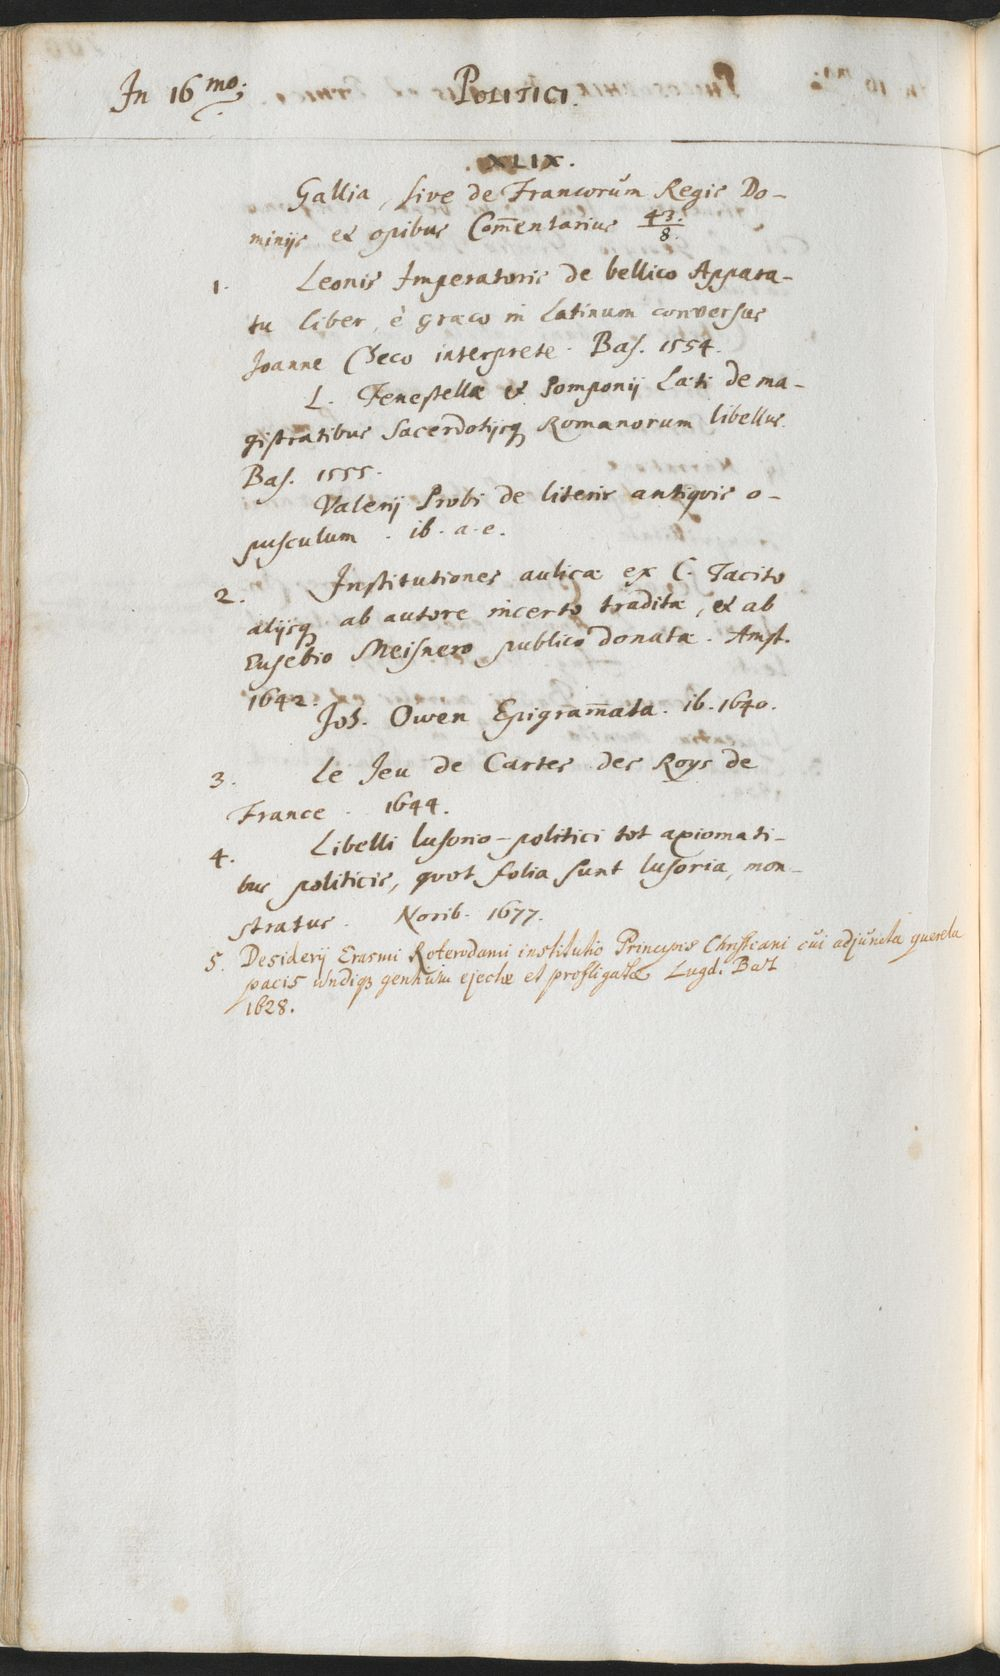 In 16 mo.
POLITICI.
. XLIX .
Gallia, sive de Francorum Regis Do-
minijs et opibus Com̄entarius 43./8.
1. Leonis Imperatoris de bellico Appara-
tu liber, è græco in Latinum conversus
Joanne Checo interprete. Bas. 1554.
L. Fenestellæ et Pomponij Læti de ma-
gistratibus Sacerdotijsq Romanorum libellus.
Bas. 1555.
Valerij Probi de literis antiquis o-
pusculum . ib. a. e.
2. Institutiones aulicæ ex C. Tacito
alijsq ab autore incerto traditæ, et ab
Eusebio Meisnero publico donatæ. Amst.
1642.
Joh. Owen Epigram̄ata. ib. 1640.
3. Le Jeu de Cartes des Roys de
France . 1644.
4. Libelli lusorio-politici tot axiomati-
bus politicis, quot folia sunt lusoria, mon-
stratus . Norib. 1677.
5. Desiderij Erasmi Roterodami institutio Principis Christiani cui adjuncta querela
pacis undiq gentium ejectæ et profligatæ Lugd. Bat
1628.